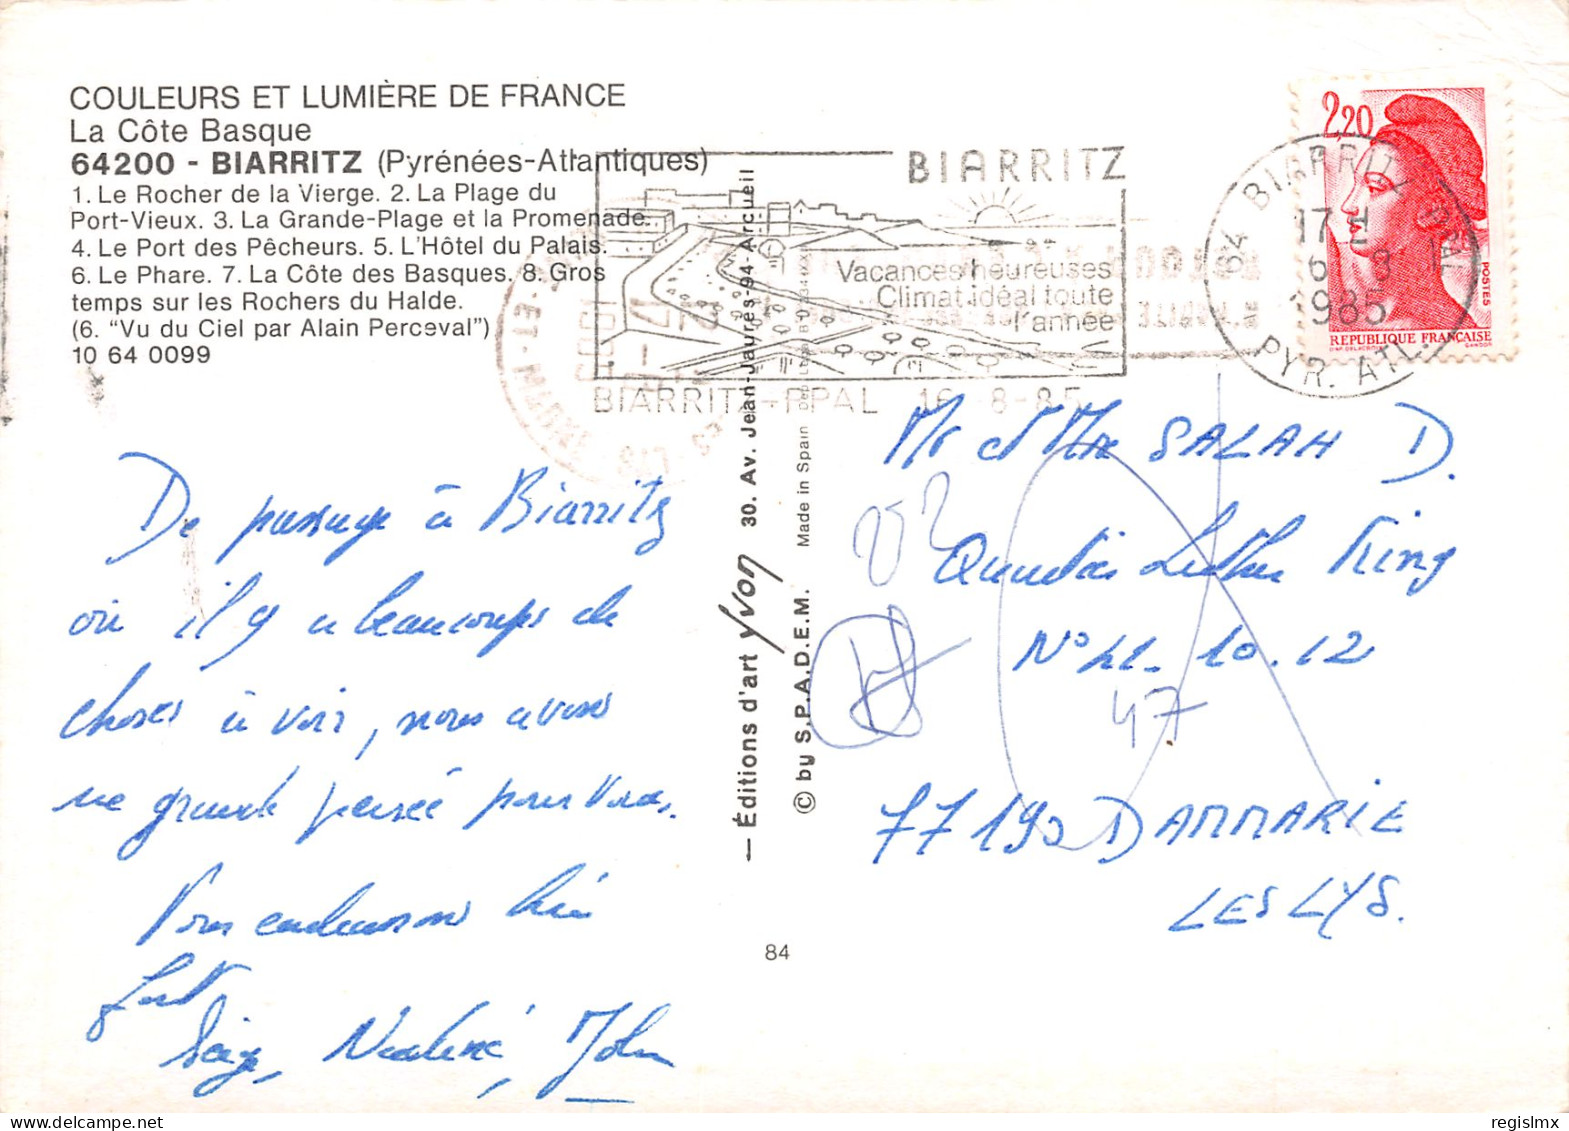 COULEURS ET LUMIÈRE DE FRANCE
La Côte Basque
64200 - BIARRITZ (Pyrénées-Atlantiques)
1. Le Rocher de la Vierge. 2. La Plage du
Port-Vieux. 3. La Grande-Plage et la Promenade.
4. Le Port des Pêcheurs. 5. L'Hôtel du Palais.
6. Le Phare. 7. La Côte des Basques. 8. Gros
temps sur les Rochers du Halde.
(6. "Vu du Ciel par Alain Perceval")
10 64 0099
BIARRITZ
Vacances heureuses
Climat idéal toute
l'année
BIARRITZ-PPAL 16-8-85
64 BIARRITZ PPAL
17 H
16 8
1985
PYR. ATL.
2,20
POSTES
REPUBLIQUE FRANÇAISE
De passage à Biarritz
où il y a beaucoups de
choses à voir, nous avons
une grande pensée pour vous.
Vous embrassons bien
fort
John
— Éditions d'art Yvon 30. Av. Jean-Jaurès-94-Arcueil
© by S.P.A.D.E.M. Made in Spain
84
Mr et Mme SALAH D.
Quartier Luther King
N° 41-10.12
47
77190 DAMMARIE
LES LYS.
regislmx